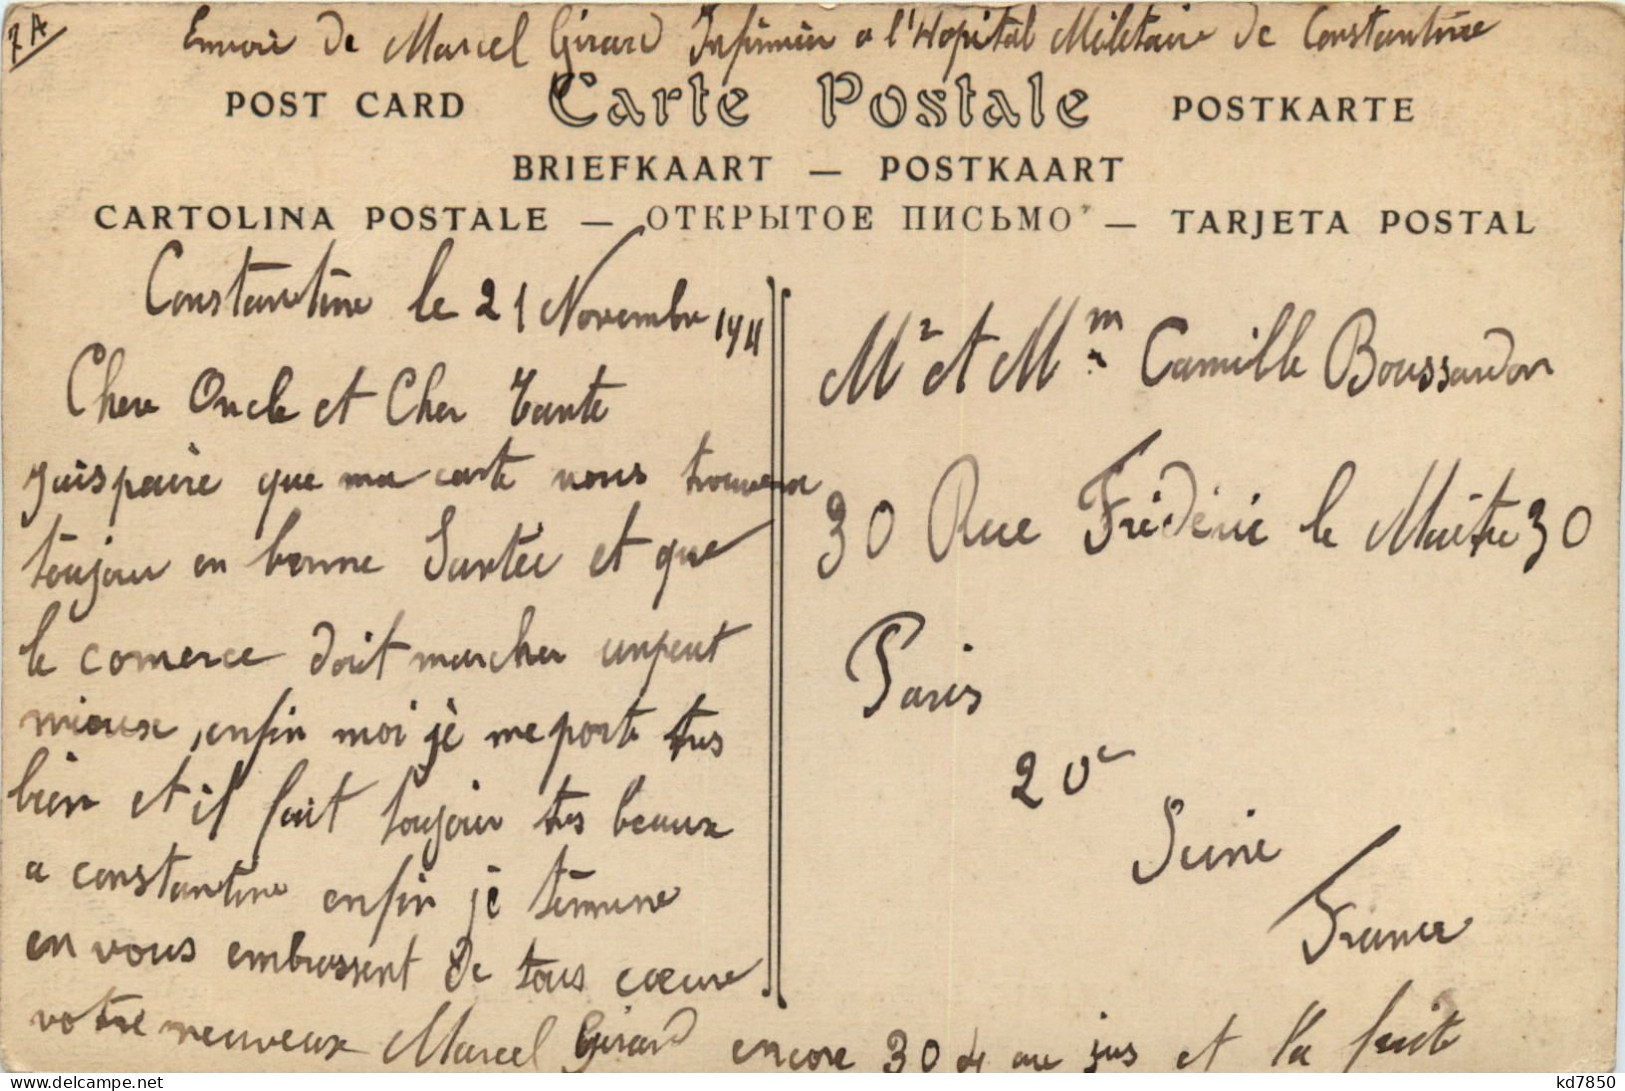 7A
Envoie De Marcel Girard Infirmier a l'Hopital Militaire de Constantine
POST CARD Carte Postale POSTKARTE
BRIEFKAART — POSTKAART
CARTOLINA POSTALE — ОТКРЫТОЕ ПИСЬМО — TARJETA POSTAL
Constantine le 21 Novembre
Chere Oncle et Cher Tante
que ma carte vous trouvera
toujour en bonne Santée et que
le comerce doit marcher unpeut
mieux, enfin moi jè me porte tres
bien et il fait toujour tres beaux
a constantine enfin jè termine
en vous embrassent de tous cœure
votre neuveux Marcel Girard encore 304 au jus et la fuit
Mr et Mme Camille Boussardon
30 Rue Frédéric le Maitre 30
Paris
20e
Seine
France
kd7850